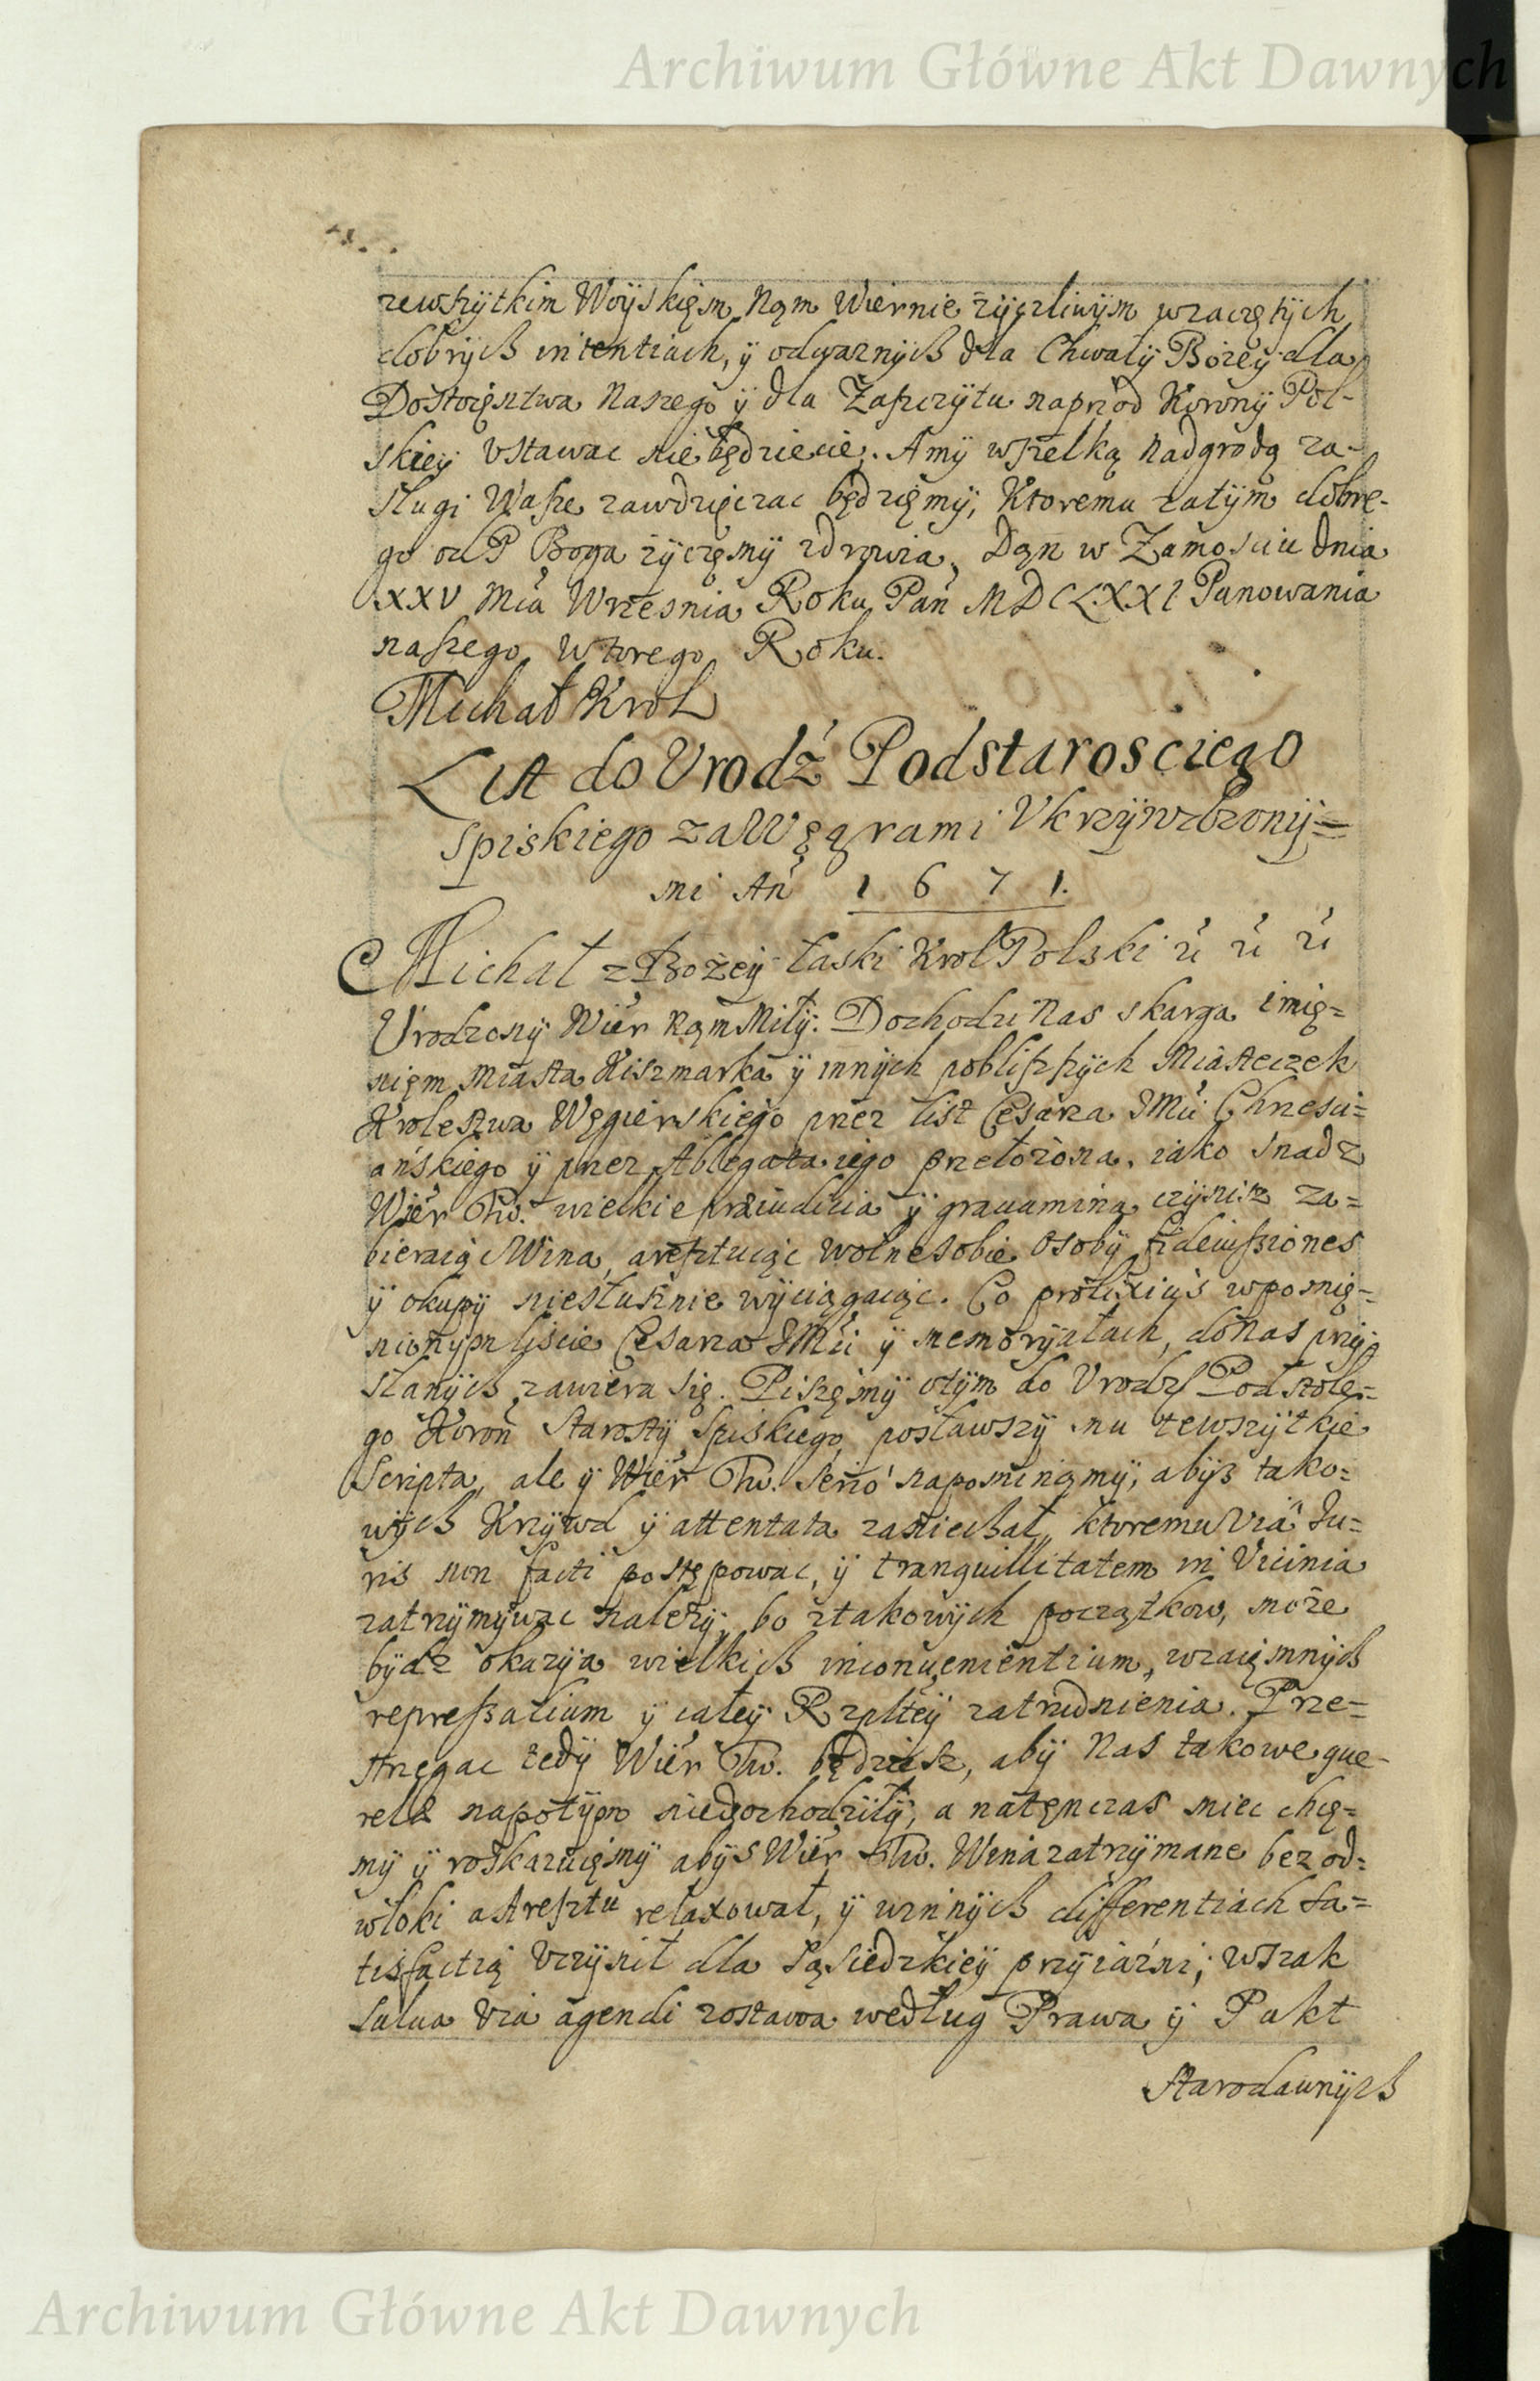 Archiwum Główne Akt Dawnych
zewszÿtkim Woÿskięm Nąm Wiernie zÿczliwÿm wzaczętÿch
dobrÿch intentiach, ÿ odważnÿch dla Chwałÿ Bożeÿ dla
Dostoięnstwa Naszego ÿ dla Zaszczÿtu naprzod Koronÿ Pol-
skieÿ Vstawac nie będziecie. Amÿ wszelką Nadgrodą za-
sługi Wasze zawdzięczac będzięmÿ, Ktoremu zatÿm dobre-
go od P Boga życzęmÿ zdrowia, Dąn w Zamosciu dnia
XXV Mca Wrzesnia Roku Pan MDCLXXI Panowania
naszego Wtorego Roku.
Michał Krol
List do Vrodź Podstarosciego
Spiskiego zaWęgrami Vkrzÿwdzonÿ=
mi An 1671.
Michał z Bożeÿ łaski Krol Polski ú ú ú
Vrodzonÿ Wier Nąm Miłÿ. Dochodzi Nas skarga imię=
nięm Miasta Kiszmarka ÿ innÿch pobliszszÿch Miasteczek
Krolestwa Węgierskiego przez list Cesarza JMci Chrzesci=
ańskiego ÿ przez Ablegata iego przełożona, iako snadz
Wier Tw. wielkie praeiudicia ÿ gravamina czÿnisz za=
bieraiąc Wina, aresztuiąc wolne sobie Osobÿ fideiussiones
ÿ okupÿ niesłusznie wÿciągaiąc. Co prolixius wpomię=
nionÿm liscie Cesarza JMci ÿ memorÿałach, do Nas przÿ=
słanÿch zawiera się. Piszęmÿ otÿm do Vrodz Podstole=
go Koron Starostÿ Spiskiego, posławszÿ mu tewszÿtkie
Scripta, ale ÿ Wier Tw. serio napominamÿ, abÿs tako=
wÿch Krzÿwd ÿ attentata zaniechał, ktoremu via Iu=
ris non facti postępowac, ÿ tranquillitatem in Vicinia
zatrzÿmÿwac należÿ, bo ztakowÿch początkow, może
bÿdz okazÿa wielkich inconvenientium, wzaięmnÿch
repressalium ÿ całeÿ Rzpltеÿ zatrudnienia. Prze=
strzegac tedÿ Wier Tw. będziesz, abÿ Nas takowe que-
relae napotÿm niedochodziłÿ, a natęnczas miec chcę=
mÿ ÿ roskazuięmÿ abÿs Wier Tw. Wina zatrzÿmane bez od=
włoki astresztu relaxował, ÿ winnÿch differentiach Sa=
tisfactią Vczÿnił dla Sąsiedzkieÿ przÿiaźni; wszak
Salua via agendi zostawa według Prawa ÿ Pakt
Starodawnÿch
Archiwum Główne Akt Dawnych